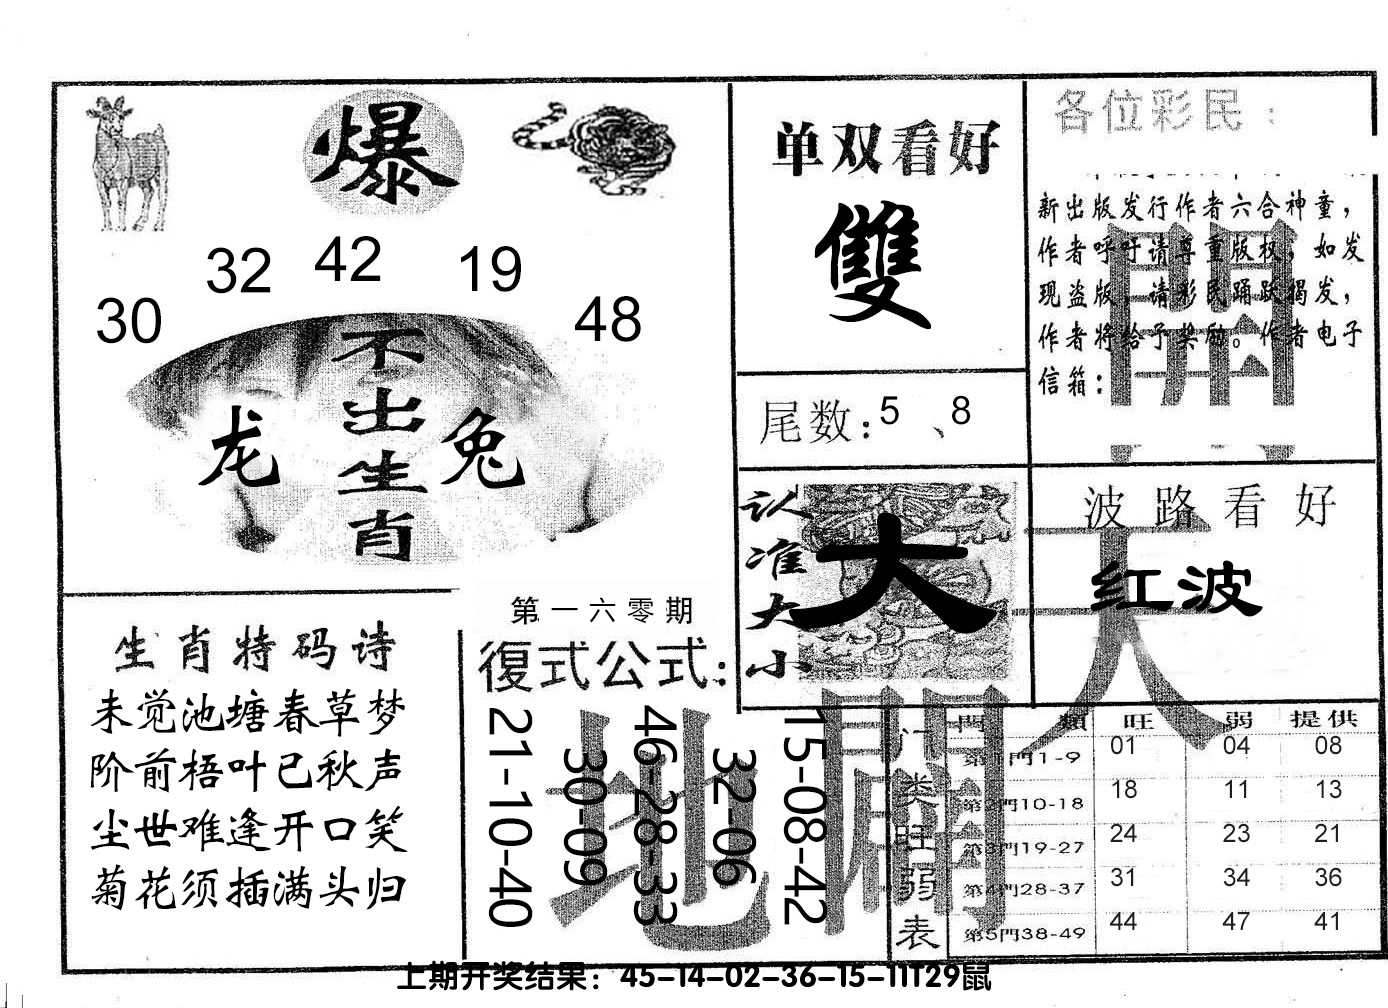 爆
30
32
42
19
48
不出生肖
龙
兔
单双看好
雙
尾数：5、8
各位彩民：
新出版发行作者六合神童，
作者呼吁请尊重版权，如发
现盗版，请彩民踊跃揭发，
作者将给予奖励。作者电子
信箱：
认准大小
大
波路看好
红波
天
開
地
開
生肖特码诗
未觉池塘春草梦
阶前梧叶已秋声
尘世难逢开口笑
菊花须插满头归
第一六零期
復式公式：
21-10-40
30-09
46-28-33
32-06
15-08-42
门类旺弱表
門類 旺 弱 提供
第1門1-9 01 04 08
第2門10-18 18 11 13
第3門19-27 24 23 21
第4門28-37 31 34 36
第5門38-49 44 47 41
上期开奖结果：45-14-02-36-15-11T29鼠